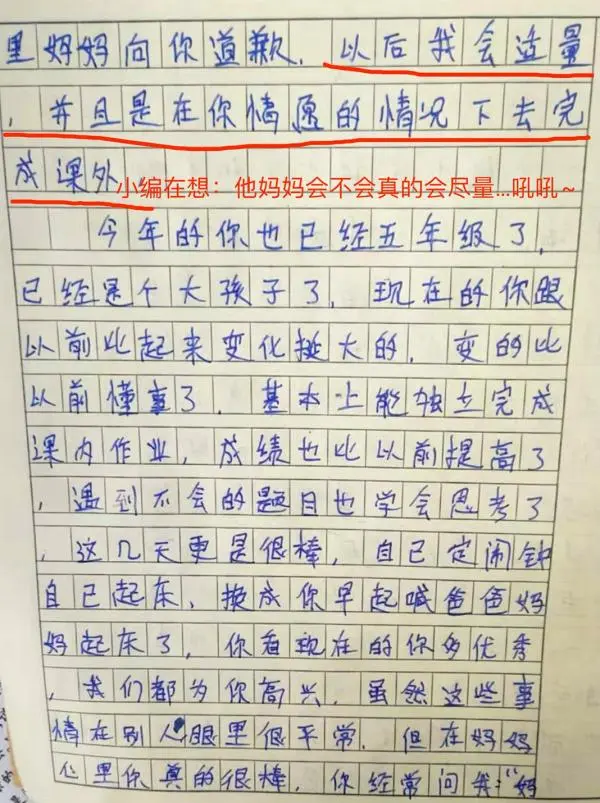 里妈妈向你道歉，以后我会适量
，并且是在你情愿的情况下去完
成课外
小编在想：他妈妈会不会真的会尽量...吼吼~
今年的你也已经五年级了，
已经是个大孩子了，现在的你跟
以前比起来变化挺大的，变的比
以前懂事了，基本上能独立完成
课内作业，成绩也比以前提高了
，遇到不会的题目也学会思考了
，这几天更是很棒，自己定闹钟
自己起床，换成你早起喊爸爸妈
妈起床了，你看现在的你多优秀
，我们都为你高兴，虽然这些事
情在别人眼里很平常，但在妈妈
心里你真的很棒，你经常问我："妈